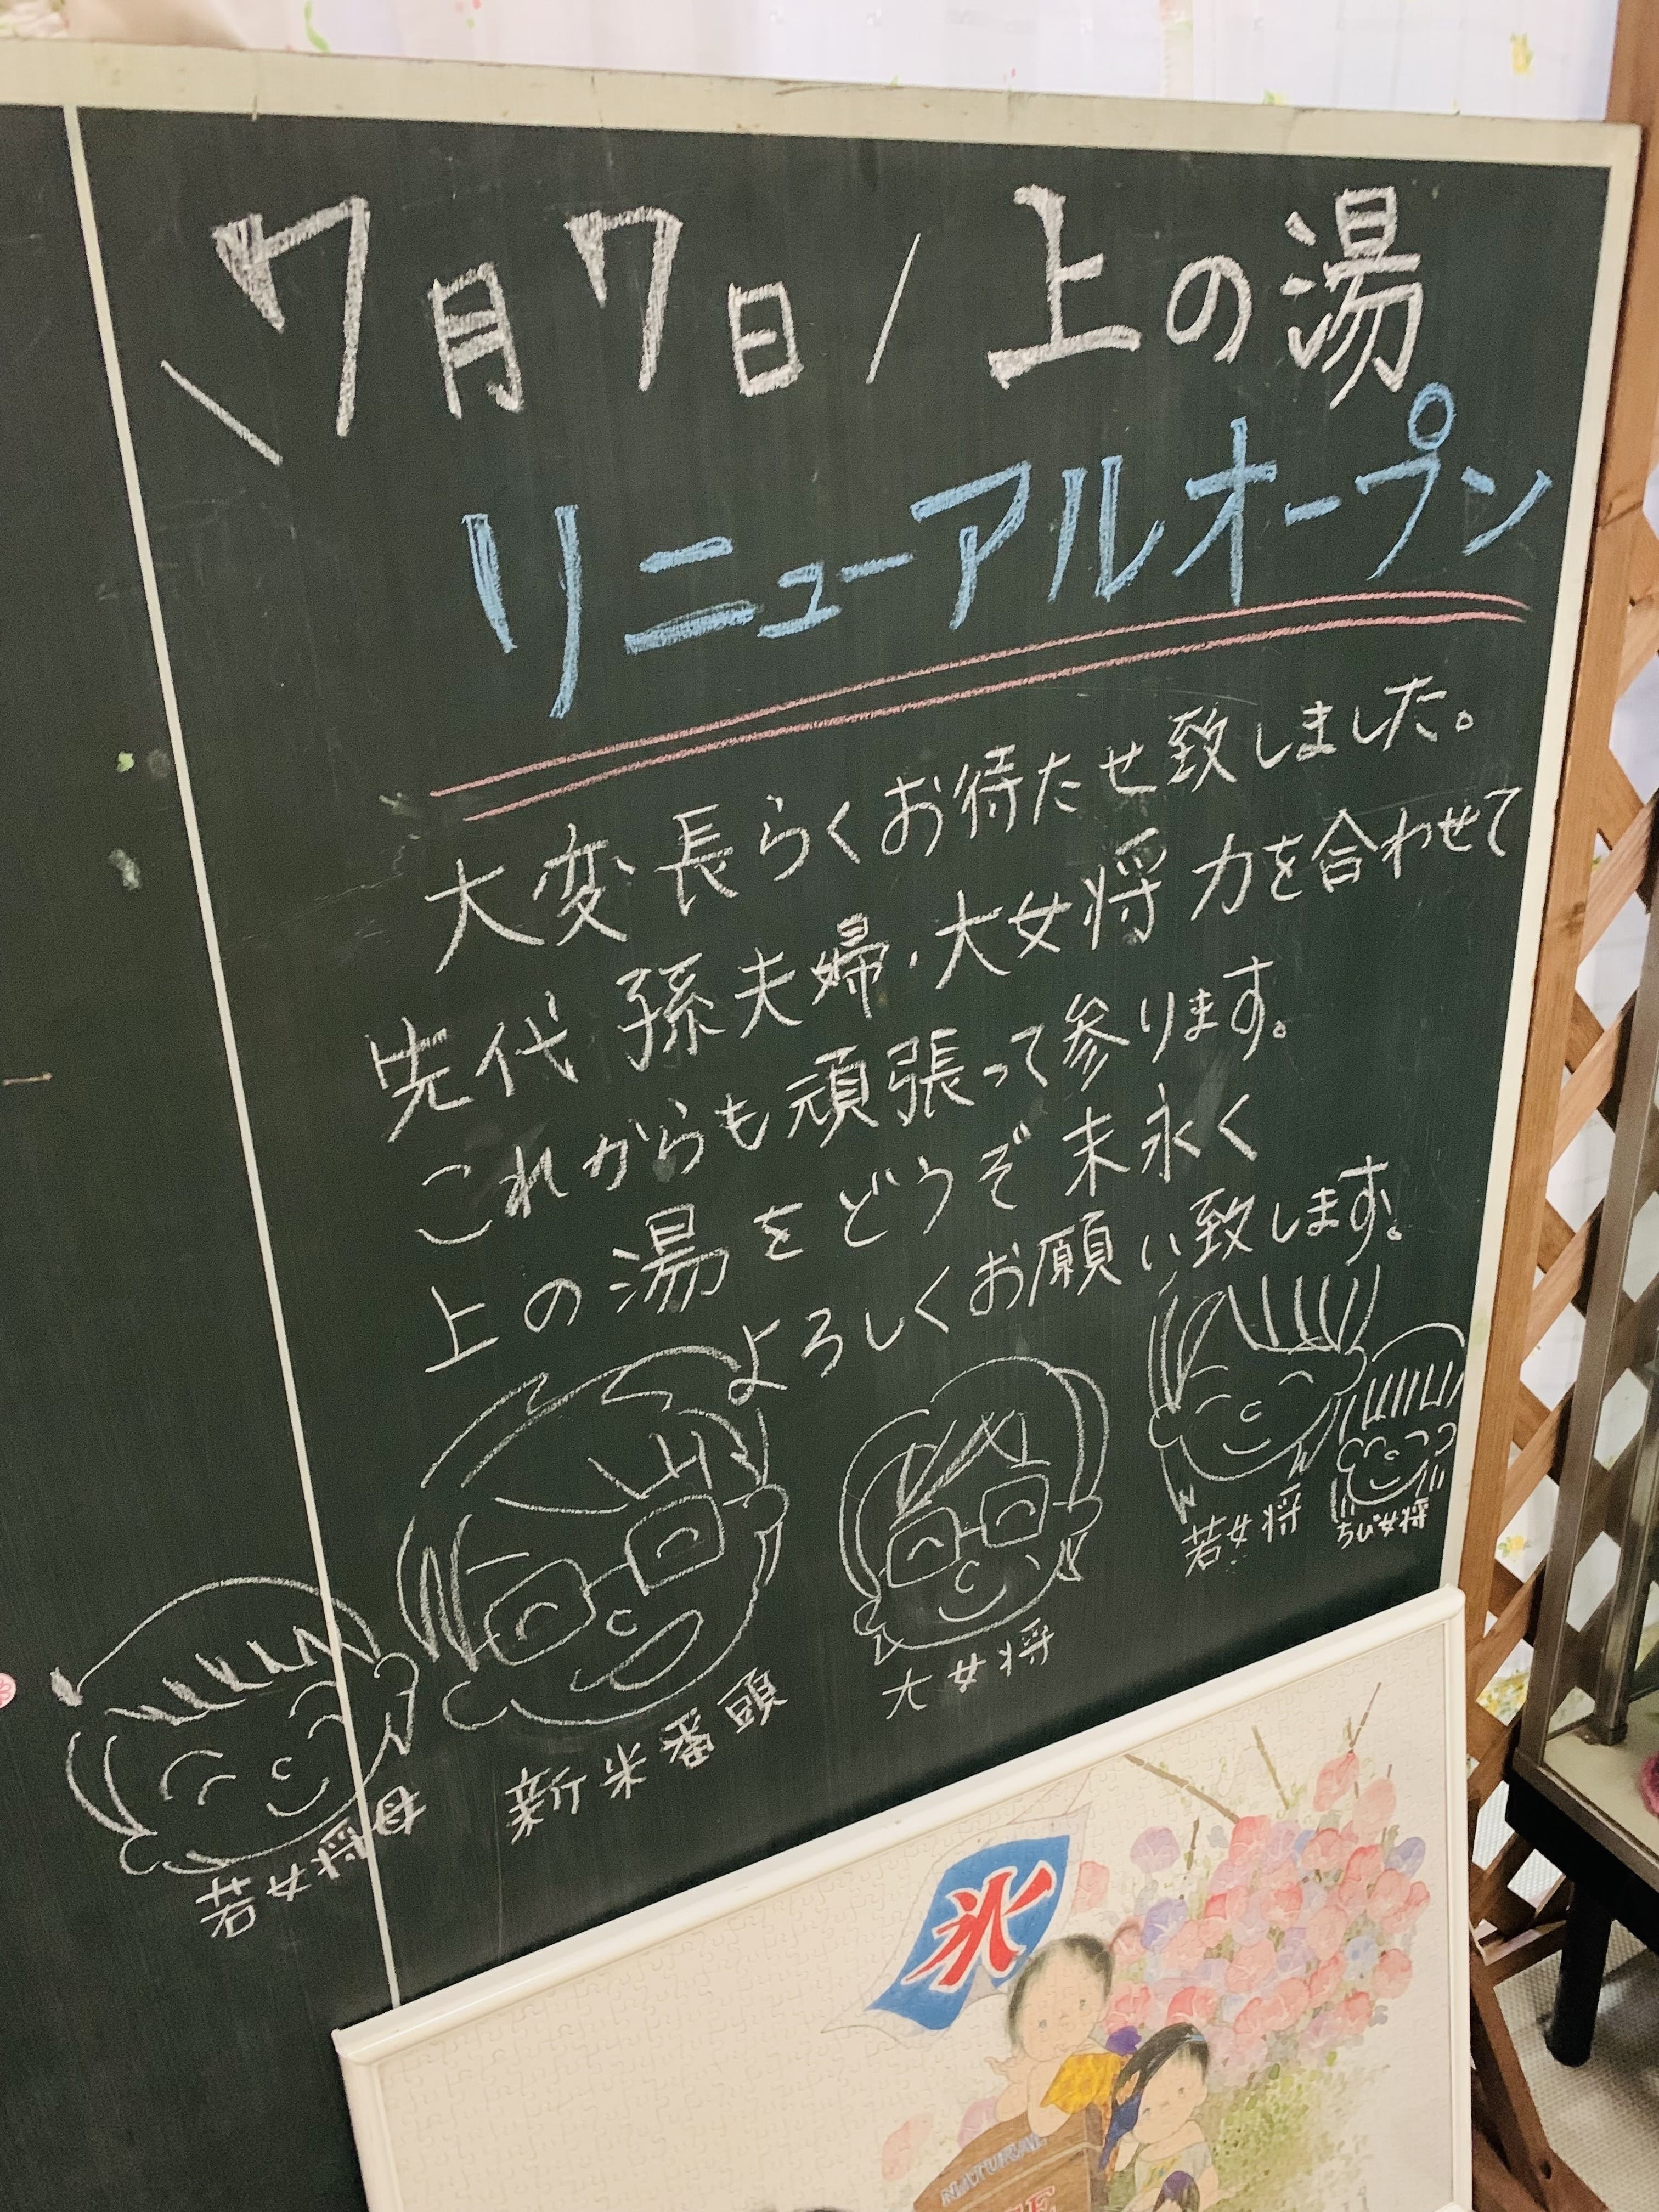 \7月7日/ 上の湯
リニューアルオープン
大変長らくお待たせ致しました。
先代 孫夫婦・大女将 力を合わせて
これからも頑張って参ります。
上の湯をどうぞ末永く
よろしくお願い致します。
若女将
ちび女将
大女将
新米番頭
若女将母
氷
NATURAL